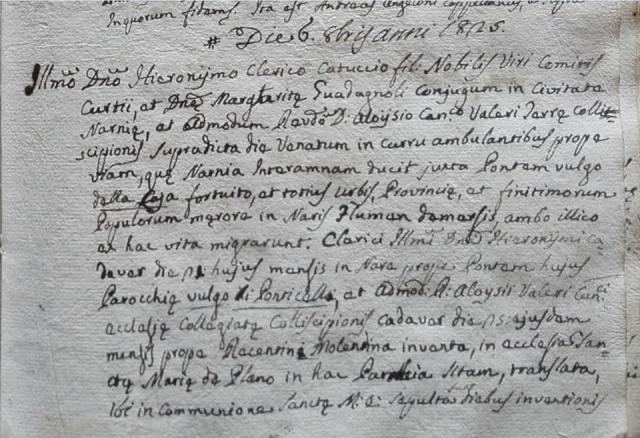 Inquorum fidem. Ita est Andreas Angeloni Cappellanus,
# Die 6. 8bris anni 1825.
Illmo Dno Hieronymo Clerico Catuccio fil: Nobilis Viri Comitis
Curtii, et Dnę Margaritę Guadagnoli conjugum in Civitate
Narnię, et Admodum Revdo D: Aloysio Canco Valeri Terrę Collit
scipionis supradicta die Venatum in curru ambulantibus prope
viam, quę Narnia Interamnam ducit juxta Pontem vulgo
della Loja fortuito, et totius Urbis, Provincię, et finitimorum
Populorum merore in Naris Flumen demersis, ambo illico
ex hac vita migrarunt. Clerici Illmi Dni Hieronymi ca
daver die 11 hujus mensis in Nare prope Pontem hujus
Parochię vulgo di Ponticello, et Admod: R: Aloysii Valeri Canci
ecclesię Collegiatę Collisscipionis cadaver die 15: ejusdem
mensis prope Recentini Molentina inventa, in ecclesia San-
ctę Marię de Plano in hac Parochia sitam, translata,
Ibi in Communione Sanctę M: E: sepulta diebus inventionis